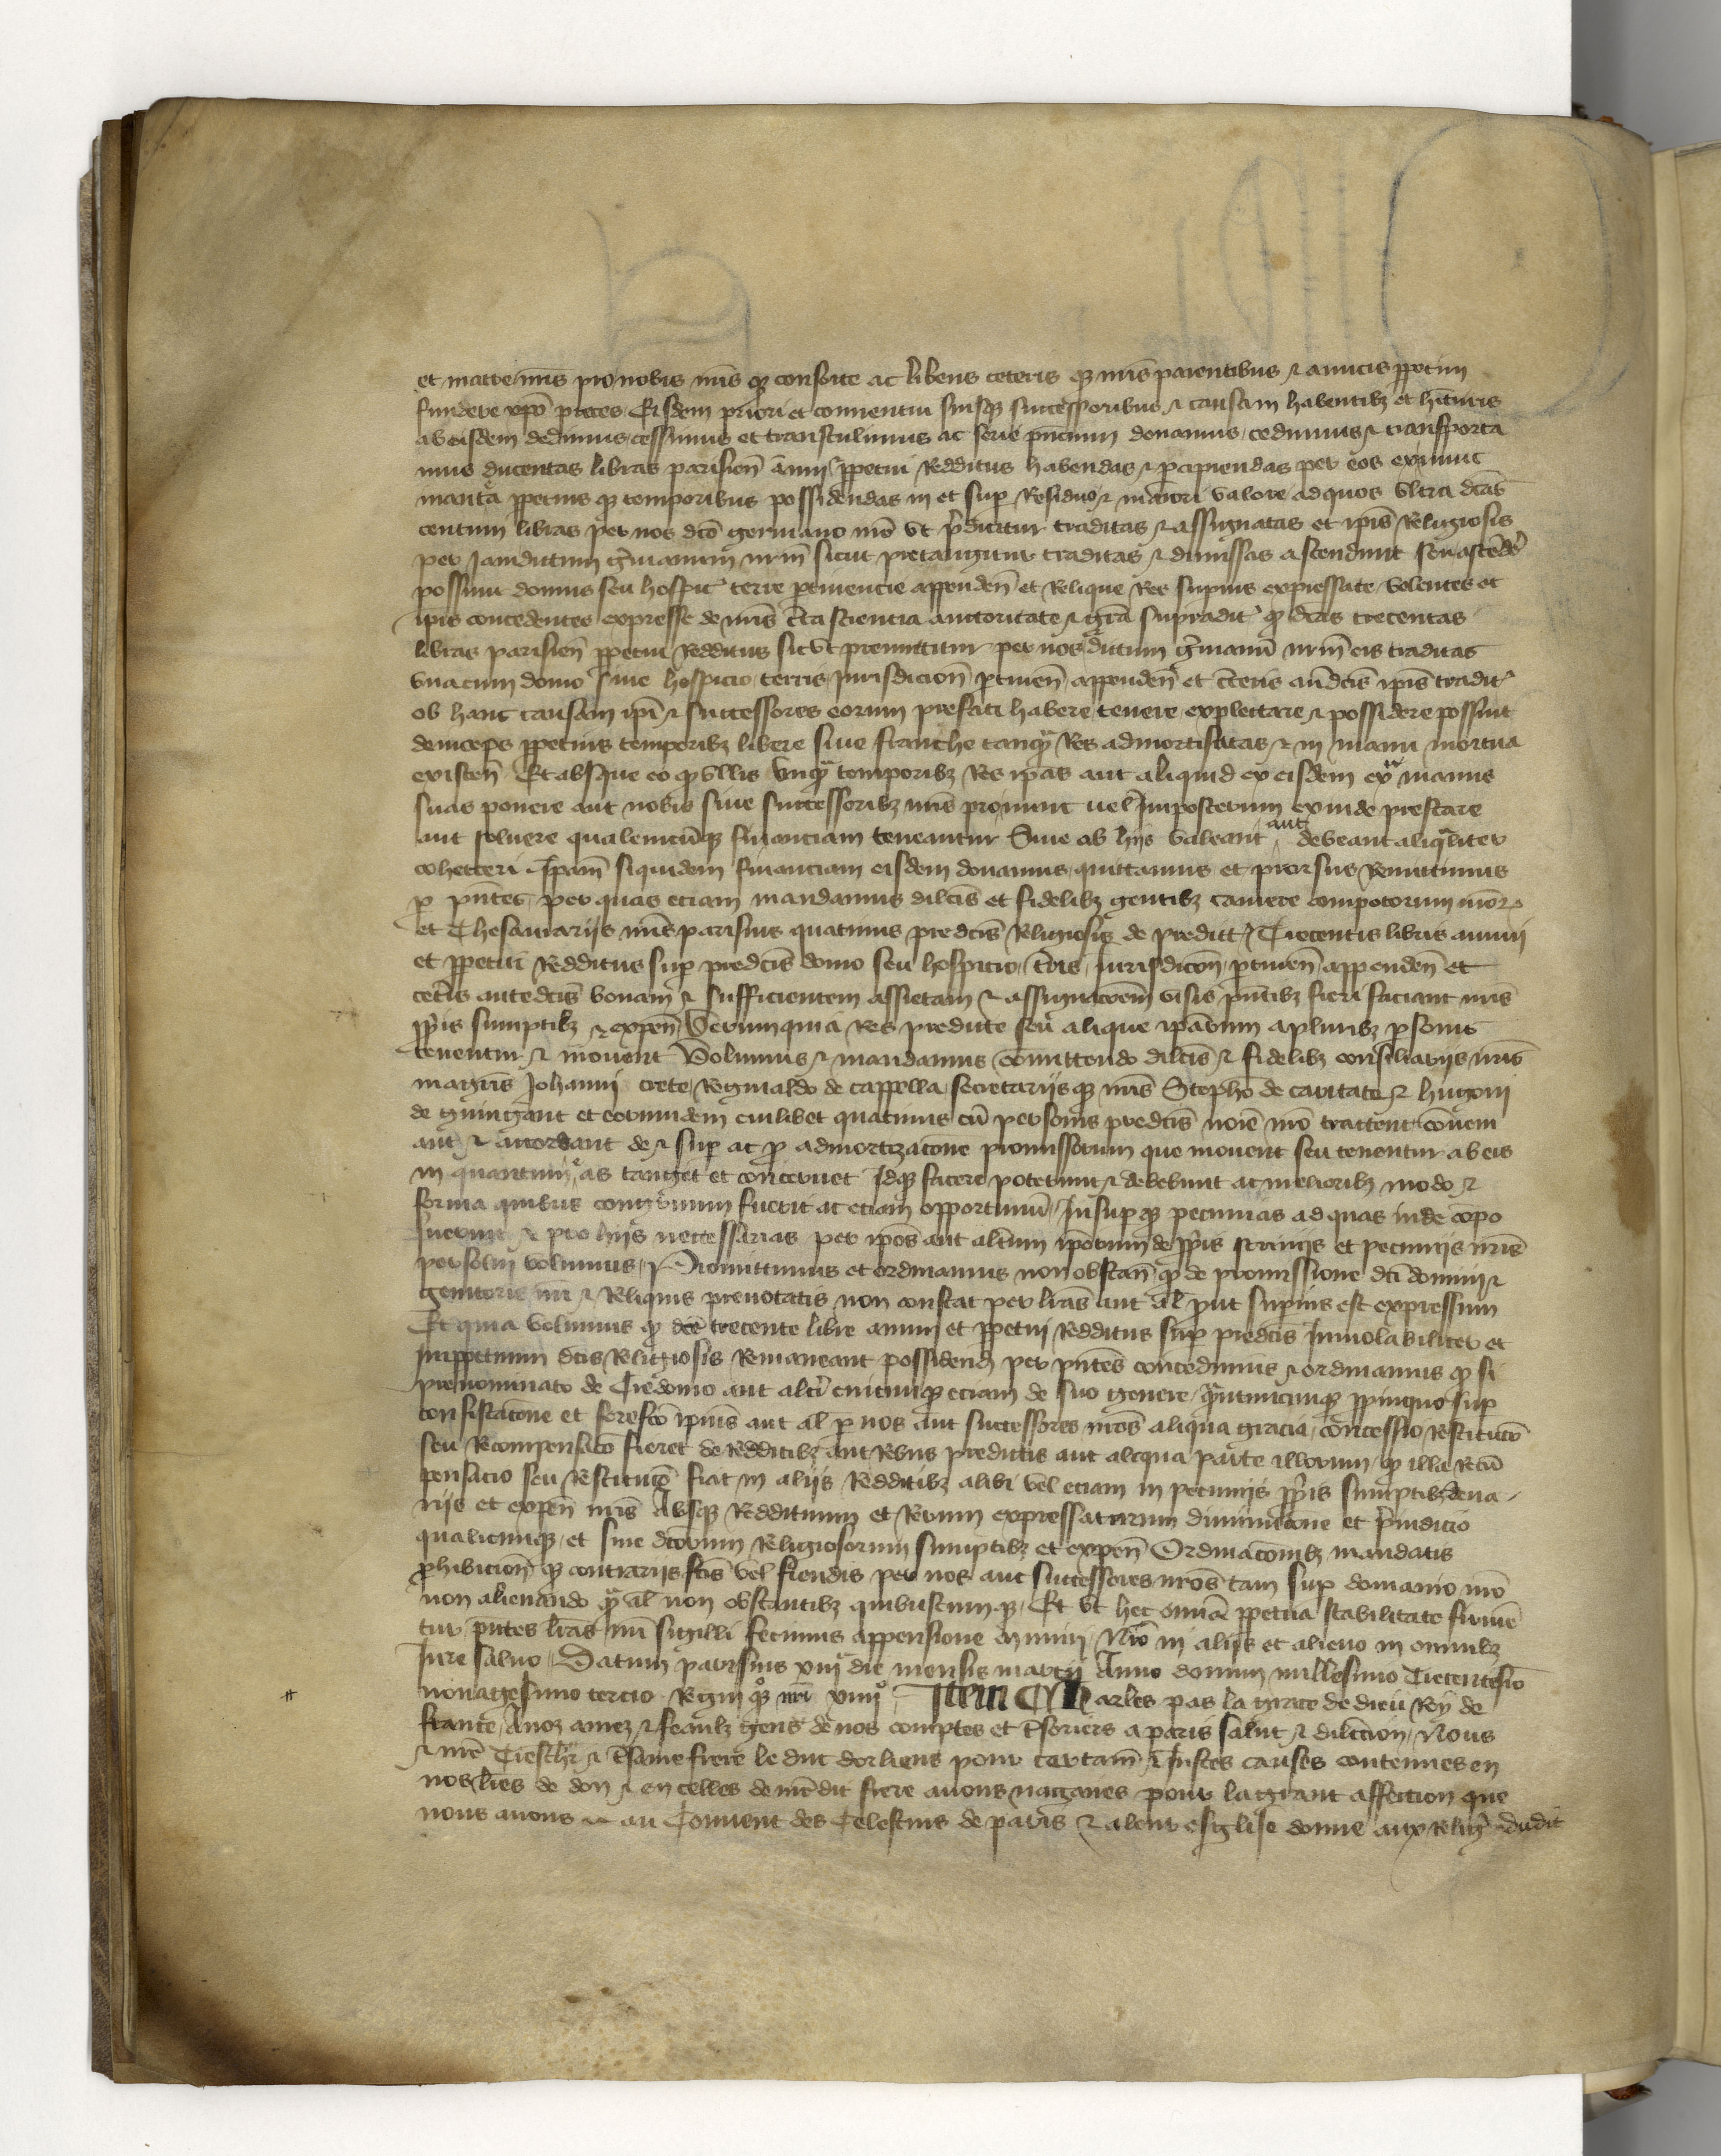 et matre nr̃is pro nobis nr̃is qʒ consorte ac liberis ceteris qʒ nr̃is parentibus ⁊ amicis ꝑpetim
fundere xp̃o preces Eisdem priori et conuentui suisqʒ successoribus ⁊ causam habentibʒ et hituris
ab eisdem dedimus cessimus et transtulimus ac serie pñcium donamus cedimus ⁊ transporta
mus ducentas libras parisieñ anui ꝑpetui Redditus habendas ⁊ ꝑcipiendas per eos ex nunc
ꝑpetuis qʒ temporibus possidendas in et suꝑ Residuo ⁊ maiori valore ad quos vltra dc̃as
centum libras per nos dc̃o germano nr̃o vt p̃dicitur traditas ⁊ assignatas et ip̃is Religiosis
per Jamdictum g̃manum nr̃m sicut pretangitur traditas ⁊ dimissas ascendunt seu ascẽdẽ
possunt domus seu hospiĉ terre ꝑtinencie appendeñ et Relique Res supius expressate volentes et
ip̃is concedentes expresse de nr̃is c̃ta sciencia auctoritate ⁊ gr̃a supradiĉ qʒ dc̃as trecentas
libras parisieñ ꝑpetui Redditus sicut premittitur per nos dictum g̃manũ nr̃m eis traditas
vnacum domo siue hospicio terris Jurisdicioñ ꝑtineñ appendeñ et c̃teris añdc̃is ip̃is tradiĉ
ob hanc causam ip̃i ⁊ successores eorum prefati habere tenere explectare ⁊ possidere possint
deinceps ꝑpetuis temporibʒ libere siue franche tanqᵃ Res admortisatas ⁊ in manu mortua
existeñ Et absque eo qʒ vllis vnqᵃ temporibʒ Res ip̃as aut aliquid ex eisdem exᵃ manus
suas ponere aut nobis siue successoribʒ nr̃is pronunc uel Jmposterum exinde prestare
aut soluere qualemcũqʒ financiam teneantur Siue ab hijs valeant aut debeant aliqᵃliter
coherceri Jp̃am siquidem financiam eisdem donamus quittamus et prorsus Remittimus
ꝑ pñtes per quas eciam mandamus dilc̃is et fidelibʒ gentibʒ camere compotorum nr̃or
et Thesaurarijs nr̃is parisius quatinus predc̃is Religiosis de prediĉ Trecentis libris annui
et ꝑpetui Redditus suꝑ predc̃is domo seu hospicio t̃ris iurisdicoñ ꝑtineñ appendeñ et
cet̃is antedc̃is bonam ⁊ sufficientem assietam ⁊ assignacõem visis pñtibʒ fieri faciant nr̃is
ꝓp̃is sumptibʒ ⁊ expeñ Verumquia Res predicte seu alique ip̃arum a pluribʒ ꝑsonis
tenentur ⁊ mouent Volumus ⁊ mandamus cõmittendo dilc̃is ⁊ fidelibʒ consiliarijs nr̃is
magr̃is Johanni crete Reginaldo de cappella secretarijsqʒ nr̃is Stepho de caritate ⁊ hugoni
de guingant et eorumdem cuilibet quatinus cũ personis predc̃is noĩe nr̃o tractent cõueni
ant ⁊ accordant de ⁊ suꝑ ac ꝓ admortizacõne promissorum que mouent seu tenentur ab eis
in quantum eas tanget et concernet Jdqʒ facere poterunt ⁊ debebunt ac melioribʒ modo ⁊
forma quibus congruum fuerit ac eciam opportunũ Jnsuꝑqʒ pecunias ad quas inde cõpo
suerint ⁊ pro hijs neccessarias per ip̃os aut alt̃um ip̃orum de ꝓp̃is scrinijs et pecunijs nr̃is
persolui volumus Promittimus et ordinamus non obstañ qʒ de promissione dc̃i domini ⁊
genitoris nr̃i ⁊ Reliquis prenotatis non constat per lr̃as aut al̃ ꝓut supius est expressum
Et quia volumus qʒ dc̃e trecente libre annui et ꝑpetui Redditus suꝑ predc̃is Jnuiolabiliter et
Jmꝑpetuum dc̃is Religiosis Remaneant possidend per pñtes concedimus ⁊ ordinamus qʒ si
prenominato de Credonio aut alt̃i cuicumqʒ eciam de suo genere qᵃntumcumqʒ ꝓpinquo suꝑ
confiscacõne et forefc̃o ip̃ius aut al̃ ꝑ nos aut successores nr̃os aliqua gracia concessio Restitucõ
seu Recompensacõ fieret de Redditibʒ aut Rebus predictis aut aliqua parte illorum qʒ illa Recõ
pensacio seu Restitucõ fiat in alijs Redditibʒ alibi vel eciam in pecunijs ꝓp̃is sumptibʒ dena
rijs et expeñ nr̃is Absqʒ Reddituum et Rerum expressatarum diminucõne et p̃iudicio
qualicumqʒ et sine dc̃orum Religiosorum sumptibʒ et expeñ Ordinacõnibʒ mandatis
ꝓhibicioñ qʒ contrarijs fc̃is vel fiendis per nos aut successores nr̃os tam suꝑ domanio nr̃o
non alienando qᵃ al̃ non obstantibʒ quibuscumqʒ Et vt hec om̃ia ꝑpetua stabilitate firmẽ
tur pñtes lr̃as nr̃i sigilli fecimus appensione muniri Nr̃o in alijs et alieno in omnibʒ
Jure saluo Datum parisius xiiijᵃ die mensis marcij Anno domini millesimo Trecentesĩo
nonagesimo tercio Regni qʒ nr̃i xiiijᵒ Jtem Charles par la grace de dieu Roy de
france Anoz amez ⁊ feaulx gens de nos comptes et t̃soriers a paris salut ⁊ dilection Nous
⁊ nr̃e Trescher ⁊ t̃same frere le duc dorliens pour certaiñ ⁊ Justes causes contenues en
nos lr̃es de don ⁊ en celles de nr̃edit frere auons nagaires pour la grant affection que
nous auons au Conuent des Celestins de paris ⁊ a leur esglise donne aux Relig̃ dudit